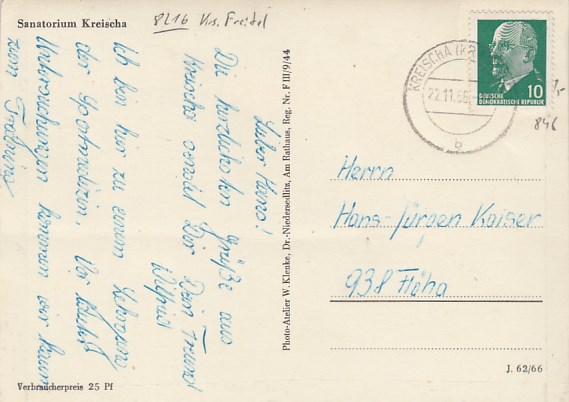 Sanatorium Kreischa
8216 Krs. Freital
Lieber Hanno!
Die herzlichsten Grüße aus
Kreischa sendet Dir
Dein Freund
Wilfried
Ich bin hier zu einem Lehrgang
der Sportmedizin. Vor lauter
Untersuchungen kommen wir kaum
zum Training
Verbraucherpreis 25 Pf
Photo-Atelier W. Klenke, Dr.-Niedersedlitz, Am Rathaus, Reg. Nr. F III/9/44
KREISCHA (KR
22.11.66
b
10
DEUTSCHE
DEMOKRATISCHE REPUBLIK
846
Herrn
Hans-Jürgen Kaiser
938 Flöha
J. 62/66